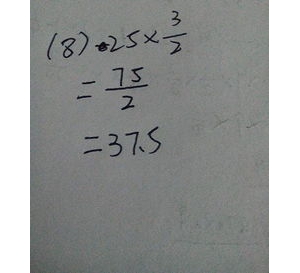 (8) 25×3/2
=75/2
=37.5